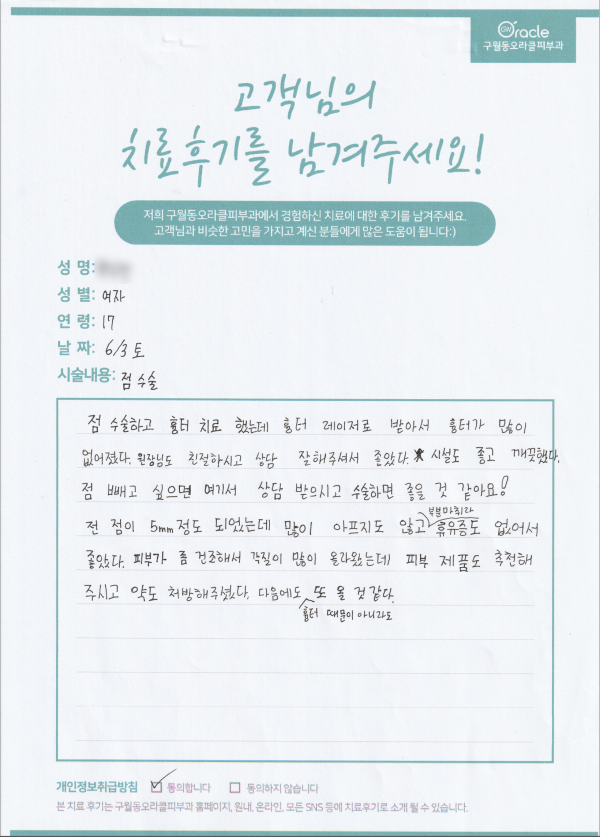 Oracle
구월동오라클피부과
고객님의
치료후기를 남겨주세요!
저희 구월동오라클피부과에서 경험하신 치료에 대한 후기를 남겨주세요.
고객님과 비슷한 고민을 가지고 계신 분들에게 많은 도움이 됩니다:)
성 명:
성 별: 여자
연 령: 17
날 짜: 6/3 토
시술내용: 점 수술
점 수술하고 흉터 치료 했는데 흉터 레이저로 받아서 흉터가 많이
없어졌다. 원장님도 친절하시고 상담 잘해주셔서 좋았다. 시설도 좋고 깨끗했다.
점 빼고 싶으면 여기서 상담 받으시고 수술하면 좋을 것 같아요!
부분마취라
전 점이 5mm정도 되었는데 많이 아프지도 않고 휴유증도 없어서
좋았다. 피부가 좀 건조해서 각질이 많이 올라왔는데 피부 제품도 추천해
주시고 약도 처방해주셨다. 다음에도 또 올 것 같다.
흉터 때문이 아니라도
개인정보취급방침 동의합니다 동의하지 않습니다
본 치료 후기는 구월동오라클피부과 홈페이지, 원내, 온라인, 모든 SNS 등에 치료후기로 소개 될 수 있습니다.